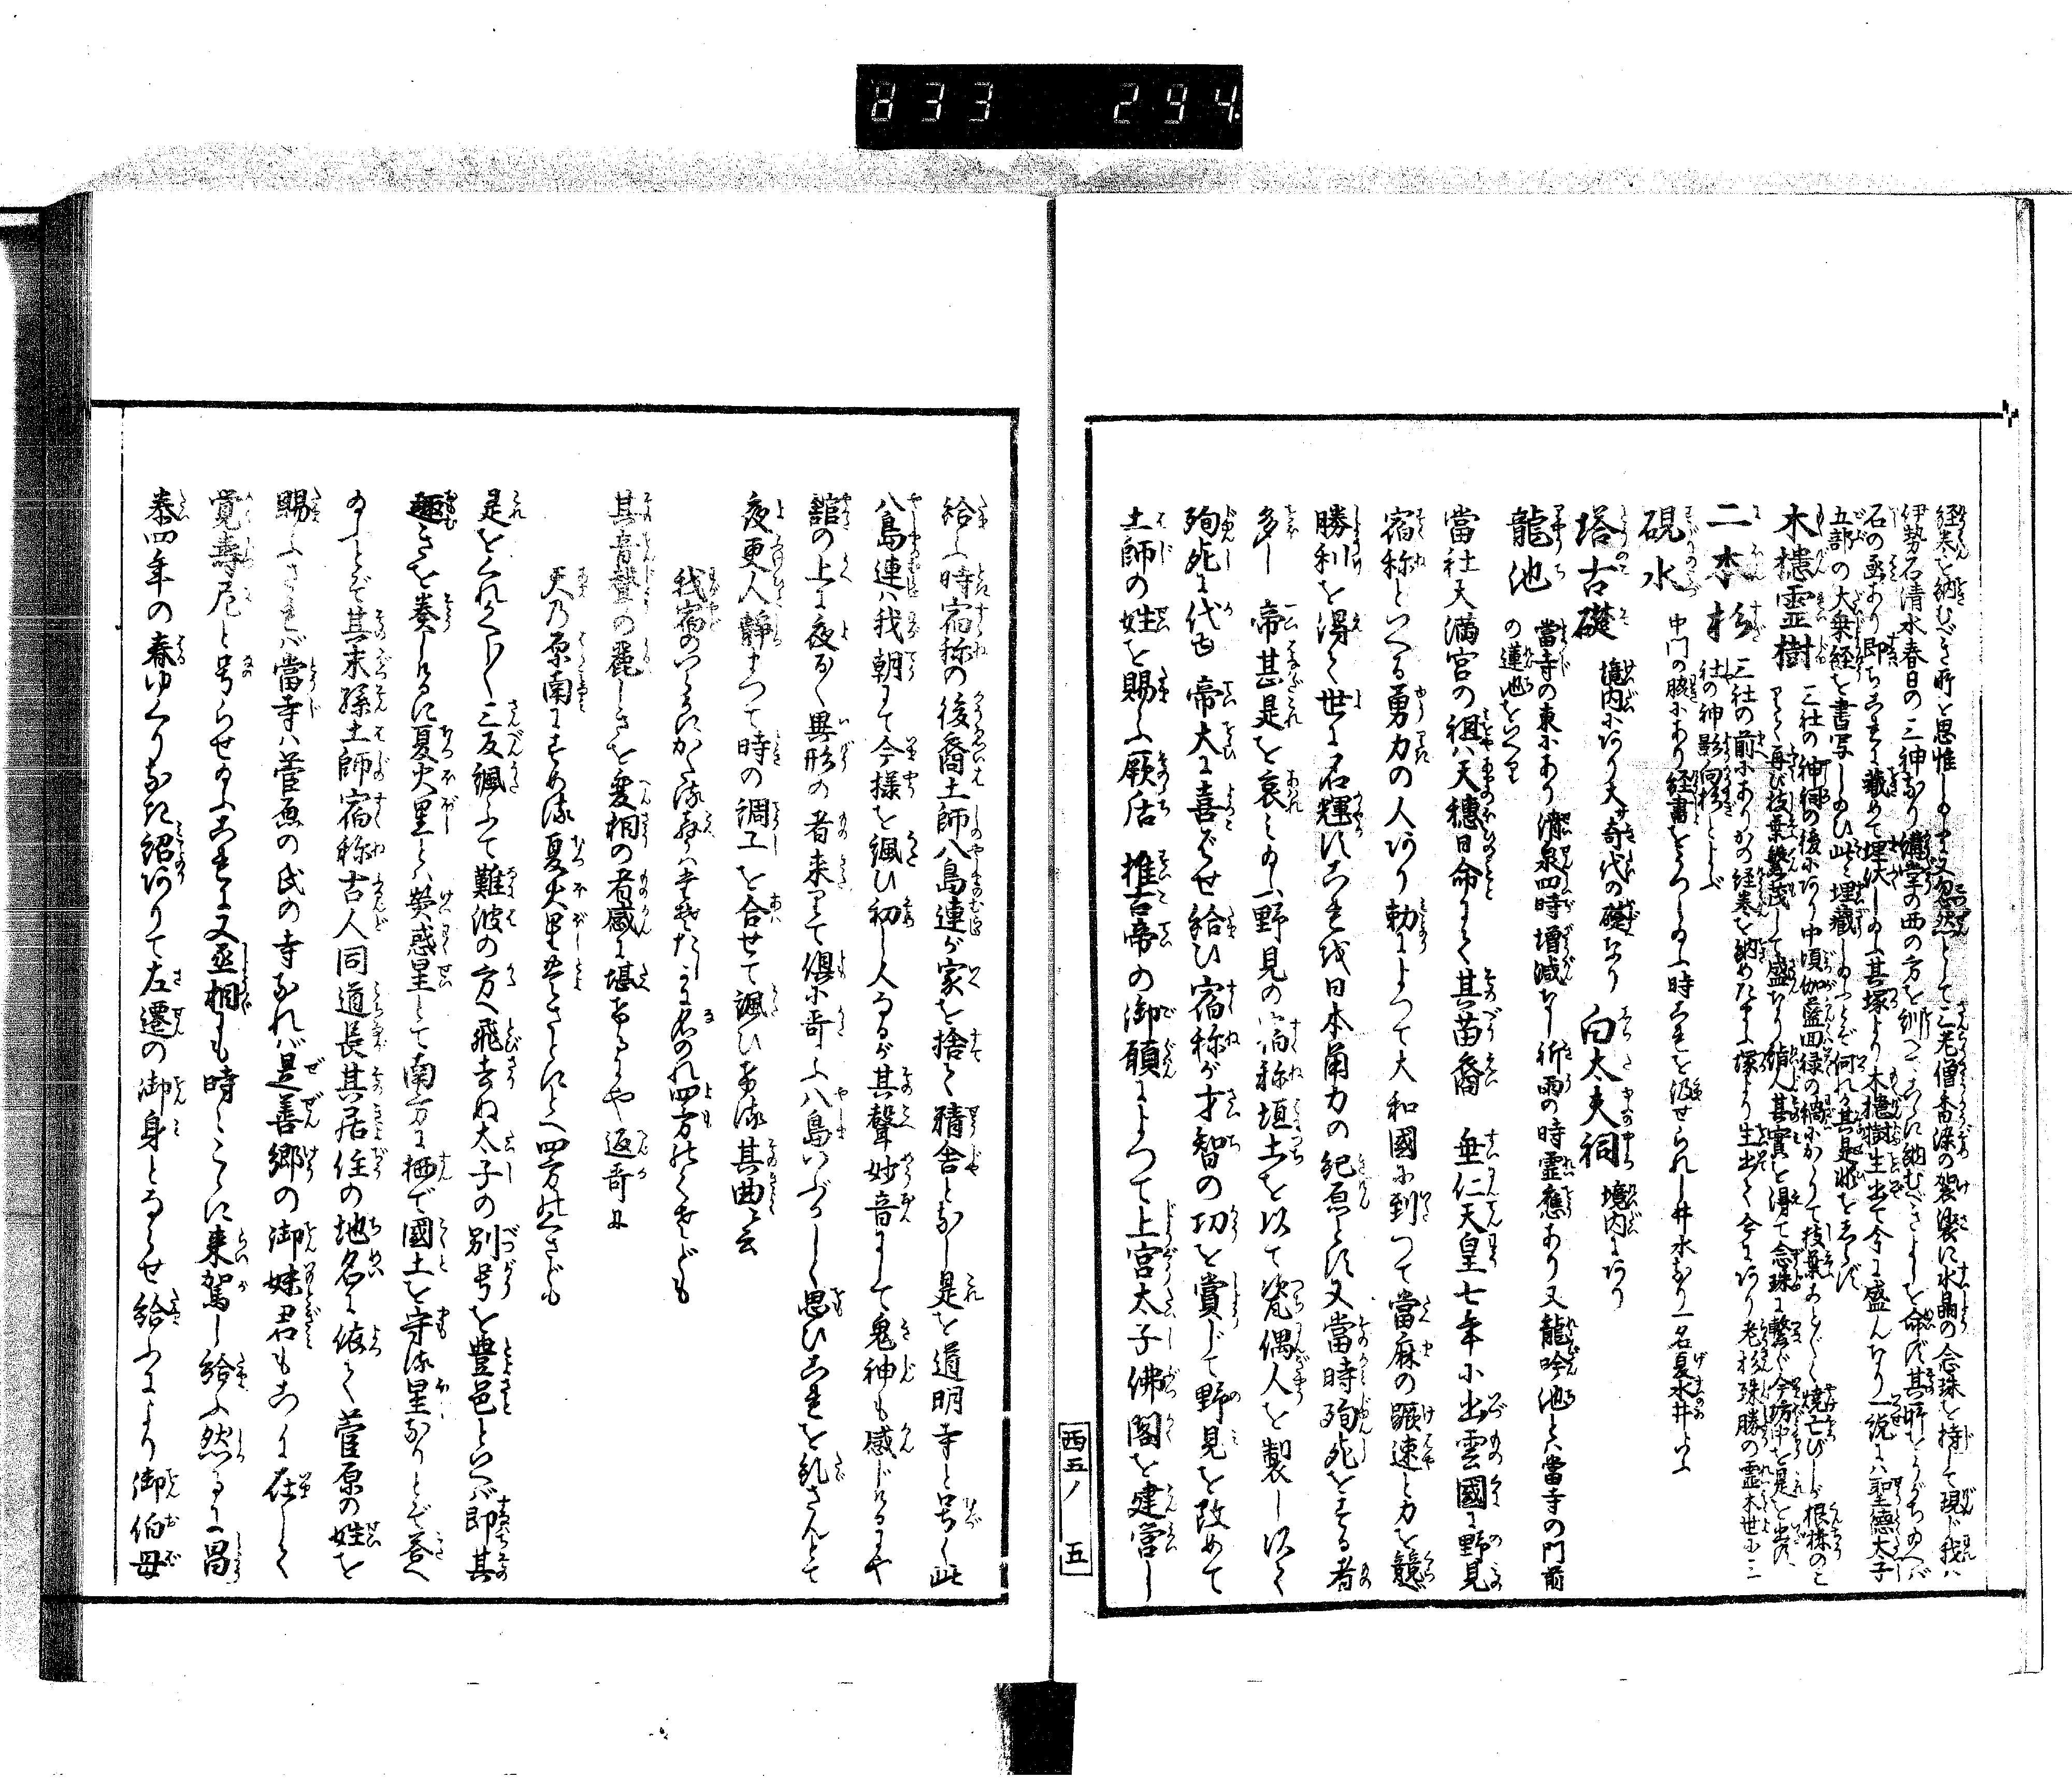 833 294.
経巻を納むべき所と思惟しゐまふ又忽然として三老僧香染の袈裟に水晶の念珠を持して現じ我ハ
伊勢石清水春日の三神なり講堂の西の方を
石の函あり即ちこれに蔵めて埋沃しゐふ其塚より木槵樹生出て今に盛んなり一説にハ聖徳太子
五部の大乗経を書写しゐひ此に埋蔵しゐふとぞ何れか其是非をしらず
木槵霊樹 三社の神祠の後にあり中頃伽藍回禄の禍にかゝりて枝葉ことごとく焼亡びしが根株のこ
りて再び枝葉繁茂して盛なり諸人其實を得て念珠に繋ぐ今坊中を是を出す
二本杉 三社の前にありかの経巻を納めたまふ塚より生出て今にあり老杉殊勝の霊木世に三
社の神影向杉とよぶ
硯水 中門の脇にあり経書をうつしゐふ時これを汲せられし井水なり一名夏水井といふ
塔古礎 境内にあり大サ奇代の礎なり 白太夫祠 境内にあり
龍池 當寺の東にあり清泉四時増減なし祈雨の時霊應あり又龍吟池とハ當寺の門前
の蓮池をいへり
當社天満宮の祖ハ天穂日命にして其苗裔 垂仁天皇七年に出雲國に野見
宿祢といへる勇力の人あり勅によつて大和國に到つて當麻の蹶速と力を競
勝利を得て世に名輝けりこれ我日本角力の紀原とす又當時殉死をする者
多し 帝甚是を哀ミゐふ野見の宿祢埴土を以て瓷偶人を製し以て
殉死に代ゆ 帝大に喜ばせ給ひ宿祢が才智の功を賞じて野見を改めて
土師の姓を賜ふ厥后 推古帝の御願によつて上宮太子佛閣を建営し
西五ノ 五
給ふ時宿祢の後裔土師八島連が家を捨て精舎となし是を道明寺と号く此
八島連ハ我朝にて今様を諷ひ初し人なるが其聲妙音にして鬼神も感じけるにや
舘の上に夜なく異形の者来りて倶に哥ふ八島いぶかしく思ひこれを糺さんとて
夜更人静まつて時の調子を合せて諷ひける其曲云
我宿のいらかにかたる声ハたそたしかに名のれ四方の
其音聲の麗しきを変相の者感に堪けるにや返哥に
天の原南にすめる夏火星
是をくれぐれ三反諷ふて難波の方へ飛去ぬ太子の別号を豊邑といへバ即其
趣きを奏しけるに夏火星とハ熒惑星とて南方に栖で國土を守る星なりとぞ答へ
ゐふとぞ其末孫土師宿祢古人同道長其居住の地名に依て菅原の姓を
賜ふされバ當寺ハ菅原の氏の寺なれバ是善郷の御妹君もこゝに在して
覚壽尼と号らせゐふこれに又丞相も時々こゝに来駕し給ふ然るに昌
泰四年の春ゆくりなき詔ありて左遷の御身とならせ給ふにより御伯母